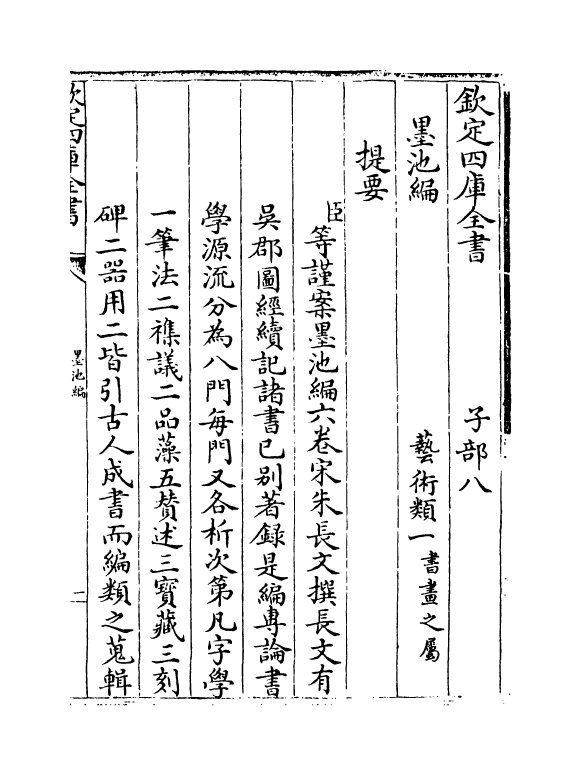 欽定四庫全書 子部八
墨池編 藝術類一書畫之屬
提要
臣等謹案墨池編六卷宋朱長文撰長文有
吳郡圖經續記諸書已别著録是編專論書
學源流分為八門每門又各析次第凡字學
一筆法二襍議二品藻五賛述三寳藏三刻
碑二器用二皆引古人成書而編類之蒐輯
欽定四庫全書 墨池編 二